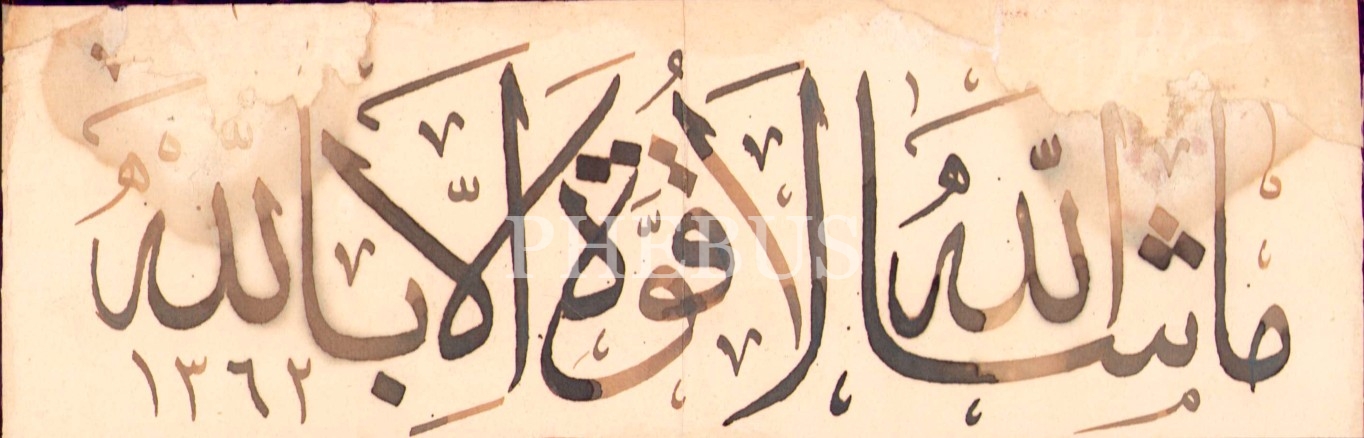 ما شاء اللّٰهُ لا قُوَّةَ إلّا باللّٰهِ
١٣٦٢
PHEBUS